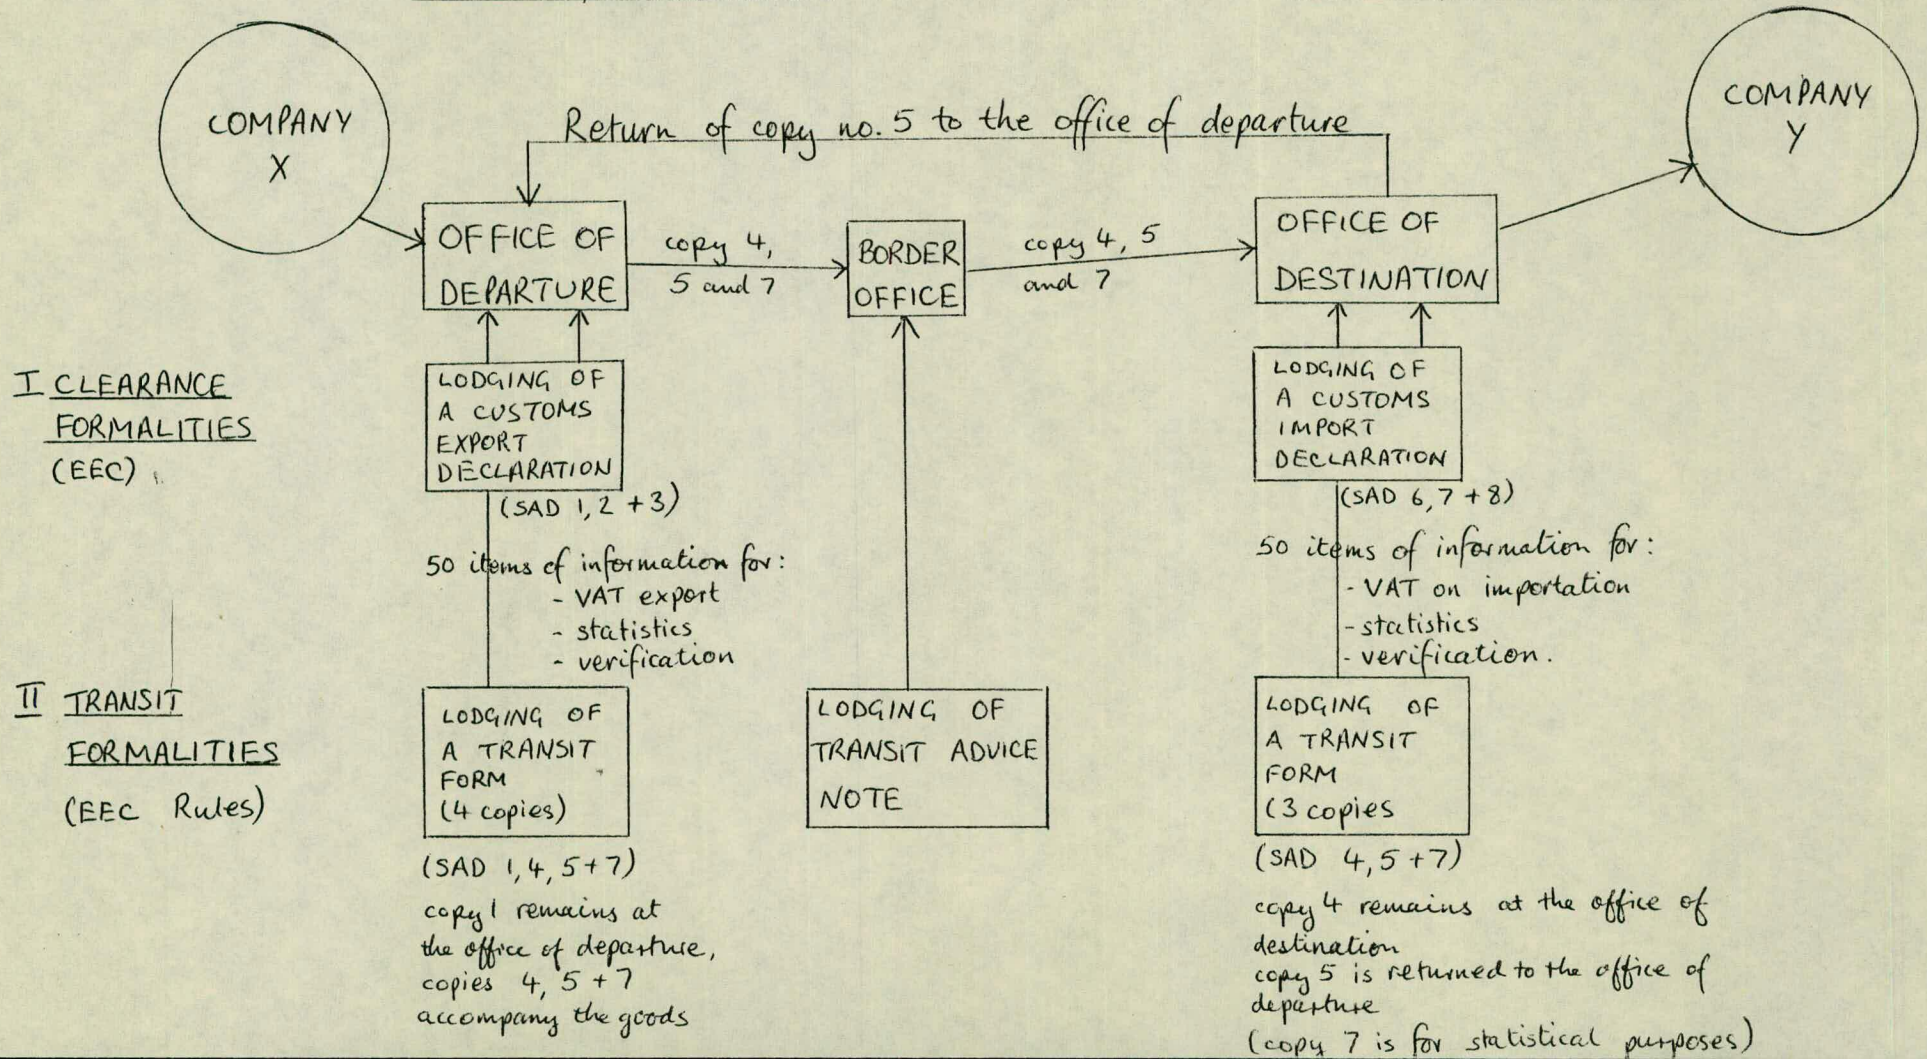 COMPANY
X
COMPANY
Y
Return of copy no. 5 to the office of departure
OFFICE OF
DEPARTURE
copy 4,
5 and 7
BORDER
OFFICE
copy 4, 5
and 7
OFFICE OF
DESTINATION
I CLEARANCE
FORMALITIES
(EEC)
LODGING OF
A CUSTOMS
EXPORT
DECLARATION
(SAD 1, 2 + 3)
50 items of information for:
- VAT export
- statistics
- verification
LODGING OF
A CUSTOMS
IMPORT
DECLARATION
(SAD 6, 7 + 8)
50 items of information for:
- VAT on importation
- statistics
- verification.
II TRANSIT
FORMALITIES
(EEC Rules)
LODGING OF
A TRANSIT
FORM
(4 copies)
(SAD 1, 4, 5 + 7)
copy 1 remains at
the office of departure,
copies 4, 5 + 7
accompany the goods
LODGING OF
TRANSIT ADVICE
NOTE
LODGING OF
A TRANSIT
FORM
(3 copies
(SAD 4, 5 + 7)
copy 4 remains at the office of
destination
copy 5 is returned to the office of
departure
(copy 7 is for statistical purposes)